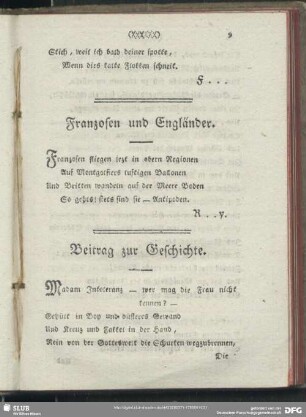 9
Stich, weil ich bald deiner spotte,
Wenn dies kalte Flocken schneit.
F...
Franzosen und Engländer.
Franzosen stiegen jezt in obern Regionen
Auf Montgolfiers luftigen Ballonen
Und Britten wandeln auf der Meere Boden
So gehts: stets sind sie — Antipoden.
R..y.
Beitrag zur Geschichte.
Madam Intoleranz — wer mag die Frau nicht
kennen? —
Gehüllt in Boy und düsteres Gewand
Und Kreuz und Fackel in der Hand,
Rein von der Gotteswelt die Schurken wegzubrennen,
Die
SLUB